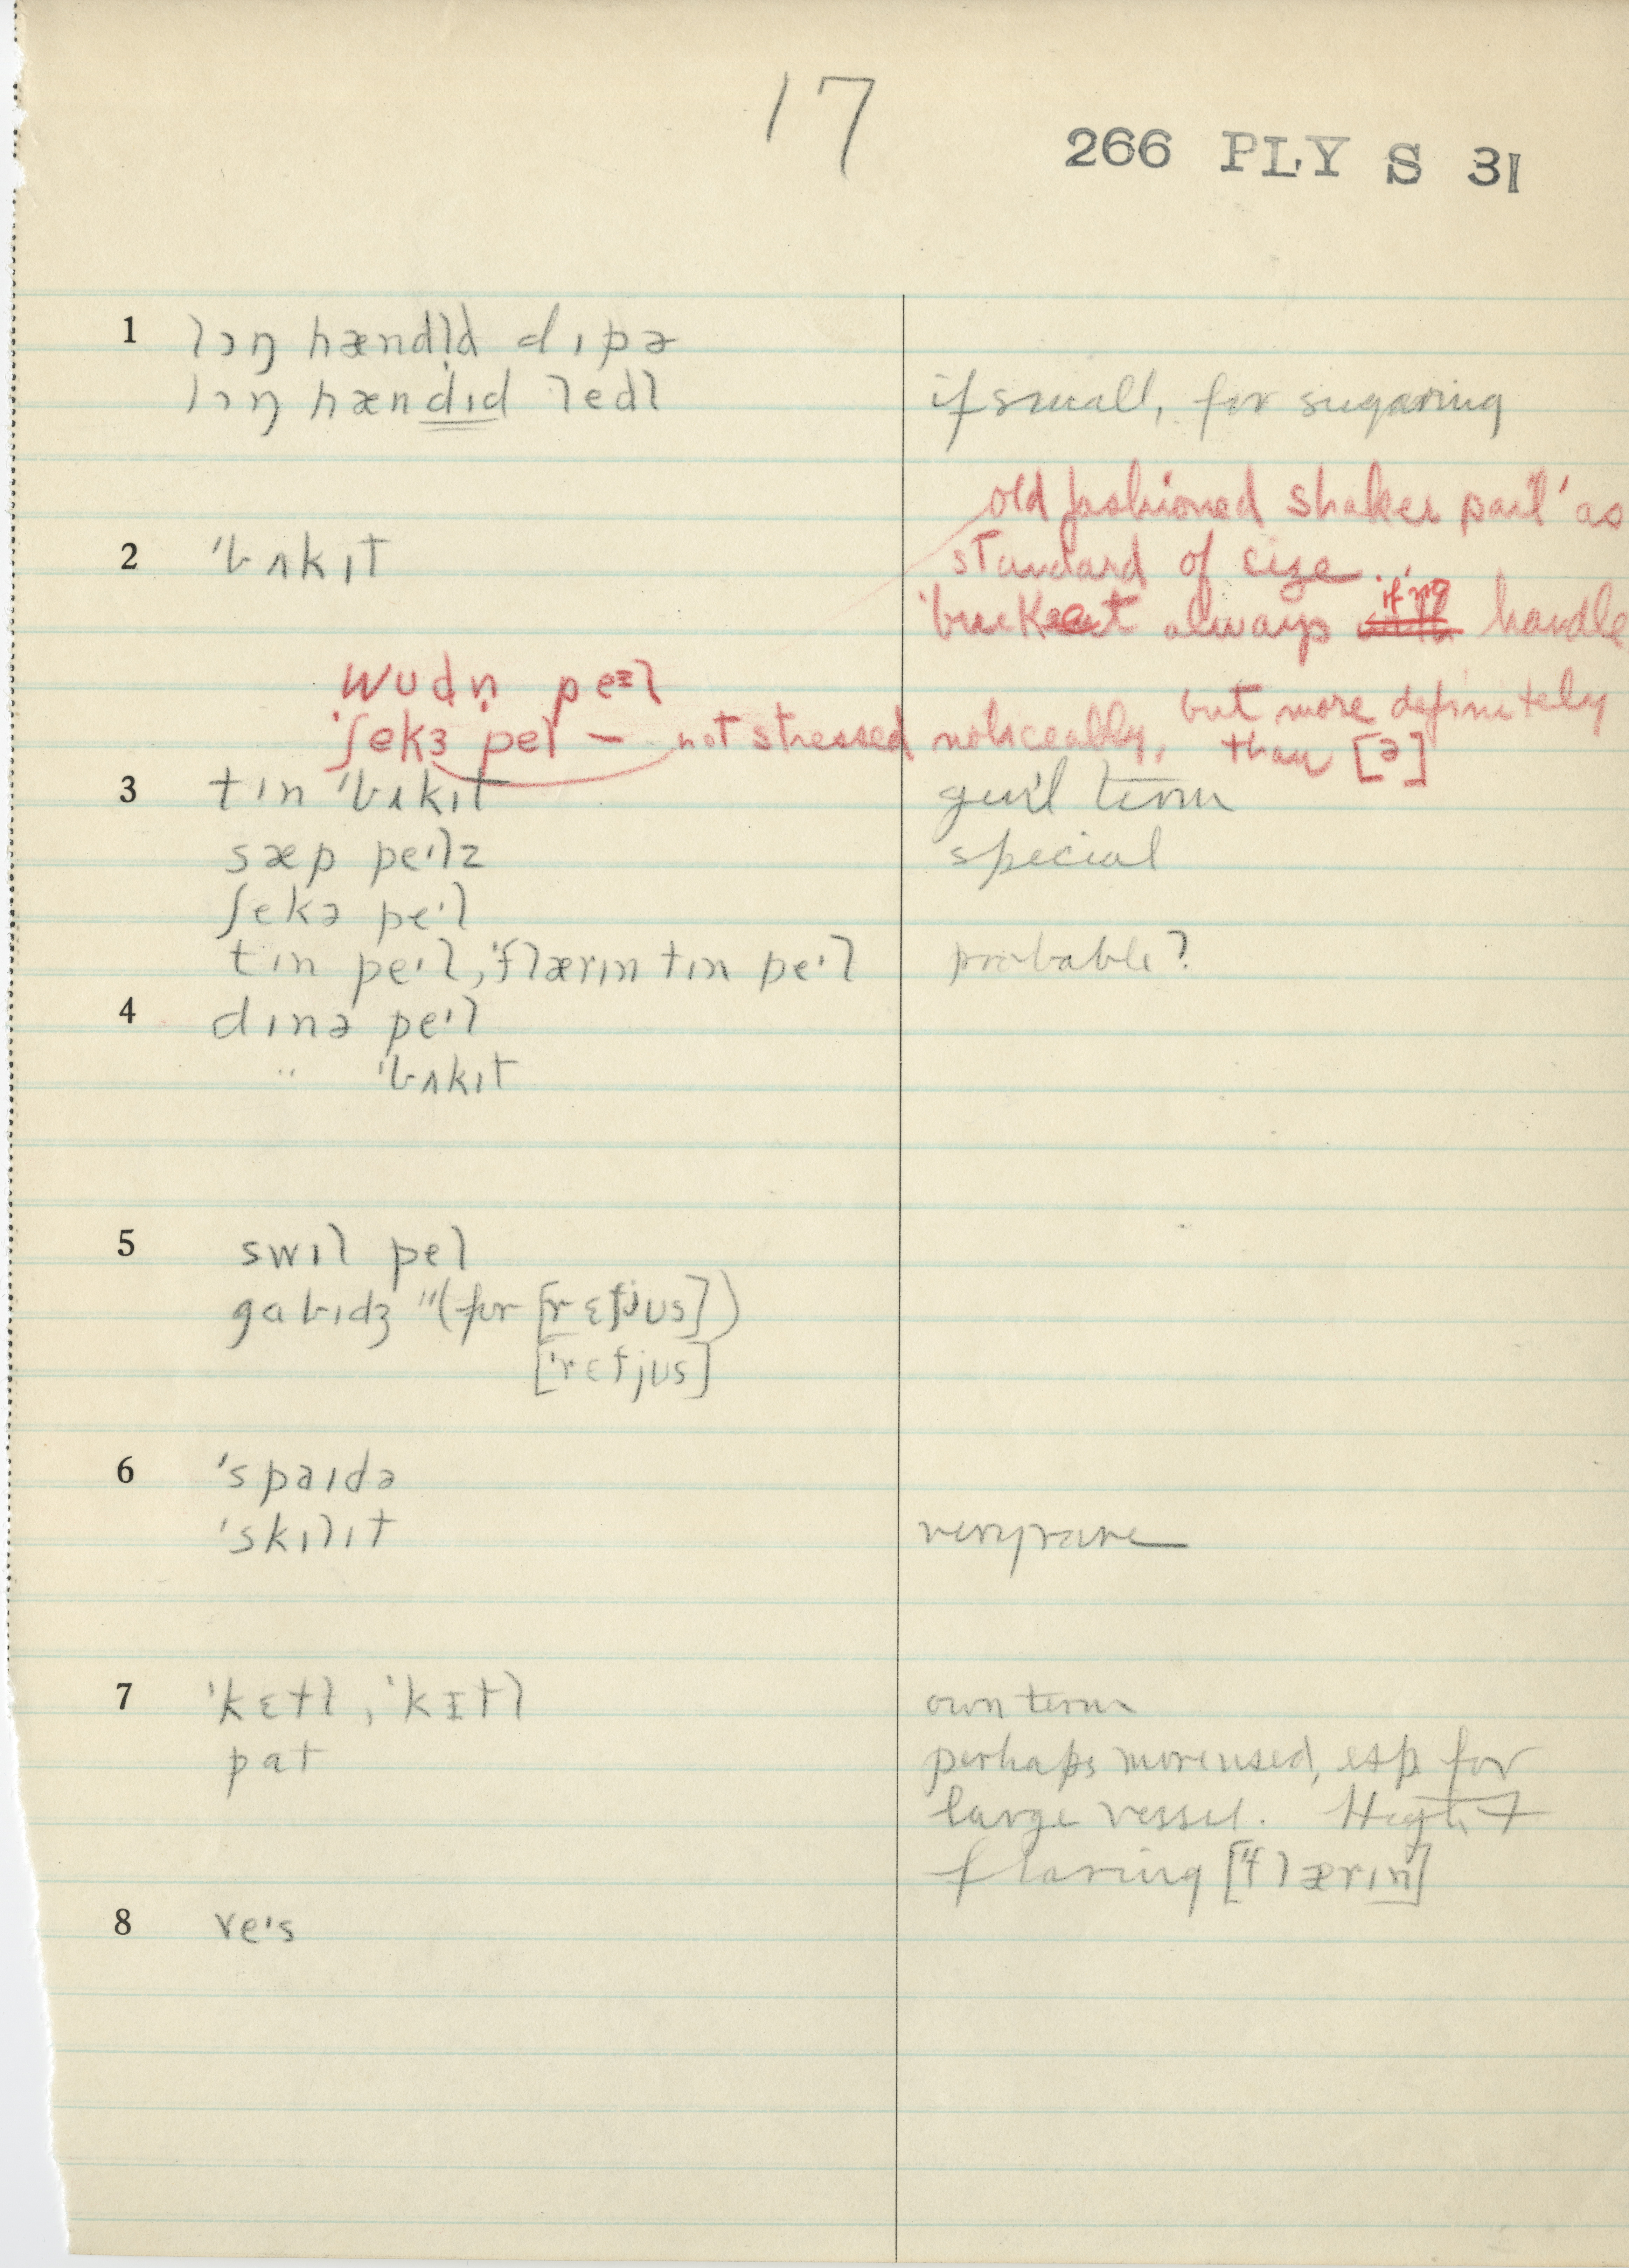 17
266 PLY S 31
1 lɔŋ hændl̩d dɪpə
lɔŋ hændɪd ledl if small, for sugaring
old fashioned shaker pail' as
2 'bʌkɪt standard of size.
'buckeet always if no handle
wʊdn̩ peᵊl
'ʃekɜ pel — not stressed noticeably, but more definitely
than [ə]
3 tɪn 'bʌkɪt gen'l term
sæp peˑlz special
ʃekə peˑl
tɪn peˑl, 'flærɪn tɪn peˑl probable?
4 dɪnə peˑl
" 'bʌkɪt
5 swɪl pel
gabɪdʒ " (for [rɛfjus])
['rɛfjus]
6 'spaɪdə
'skɪlɪt very rare
7 'kɛtl, 'kɪtl own term
pat perhaps more used, esp for
large vessel. High &
flaring ['flærɪn]
8 veˑs